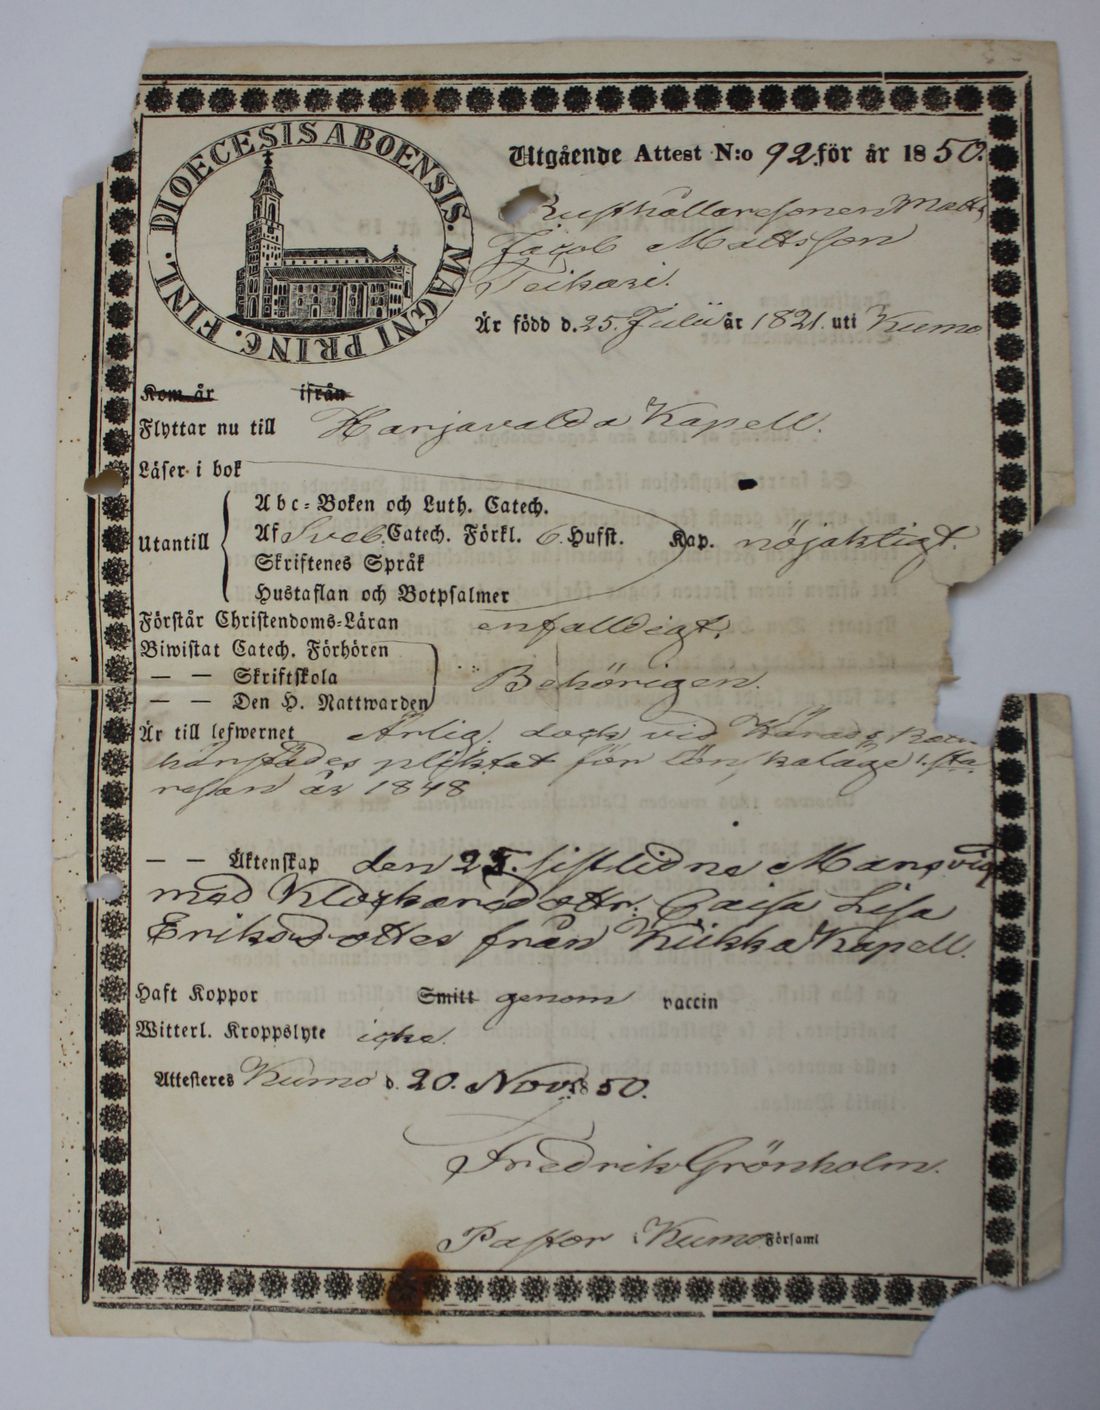 DIOECESIS ABOENSIS. MAGNI PRINC. FINL.
Utgående Attest N:o 92. för år 1850.
Rusthållaresonen Matts
Jacob Mattsson
Teikari.
Är född d. 25. Julii år 1821. uti Kumo
Kom år ifrån
Flyttar nu till Harjavalda Kapell.
Läser i bok
Utantill
Abc-Boken och Luth. Catech.
Af Sveb. Catech. Förkl. 6. Hufst. Kap. nöjaktigt.
Skriftenes Språk
Hustaflan och Botpsalmer
Förstår Christendoms-Läran enfalldigt.
Biwistat Catech. Förhören
— — Skriftskola
— — Den H. Nattwarden
Behörigen.
Är till lefwernet Ärlig. dock vid Härads
härstädes pliktat för lönskaläge 1. sta
resan år 1848
— — Äktenskap den 25. sistlidne Mars vigd
med Klockaredottr. Caisa Lisa
Eriksdotter från Kiikka Kapell.
Haft Koppor Smitt genom vaccin
Witterl. Kroppslyte icke.
Attesteres Kumo d. 20. Nov. 1850.
Fredrik Grönholm.
Pastor i Kumo Församl